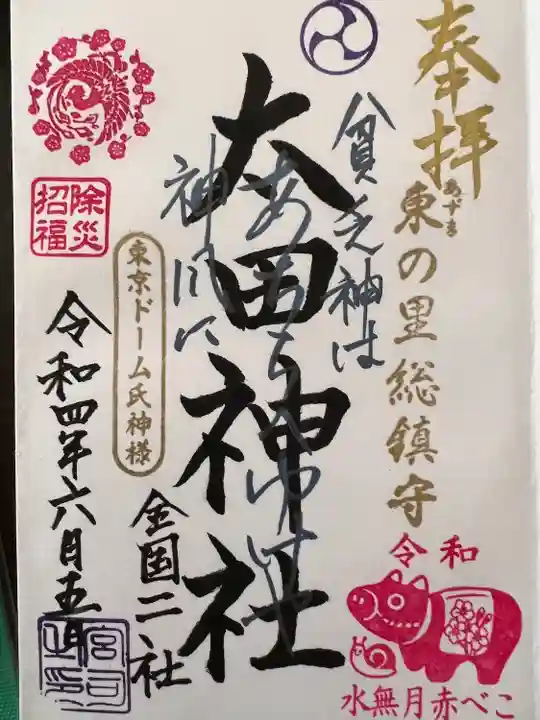 奉拝
東の里総鎮守
あずま
貧乏神は
太田神社
あちらへゆけや
神風に
東京ドーム氏神様
全国二社
令和四年六月五日
除災
招福
令和
水無月赤べこ